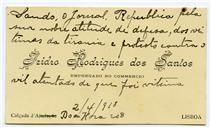 Saudo, o Jornal. Republica pela
sua nobre atitude de defesa, dos vi
timas da tirania e protesto contra o
Isidro Rodrigues dos Santos
EMPREGADO NO COMMERCIO
vil atentado de que foi vitima
2/4/918
Calçada d'
Boa Hora 208
LISBOA